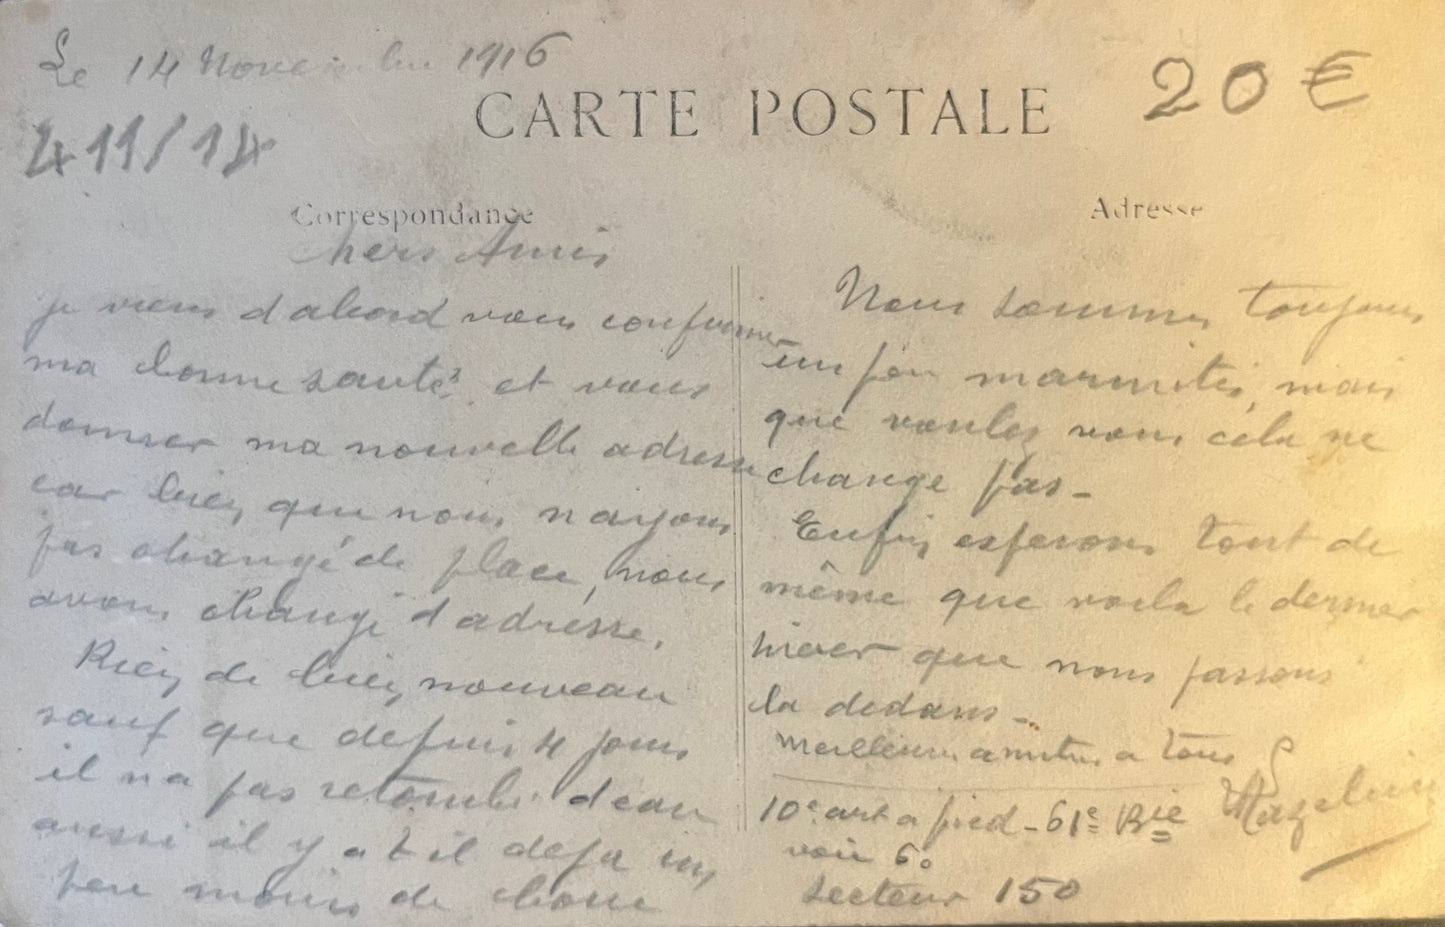 Le 14 Novembre 1916
CARTE POSTALE
20 €
411/14
Correspondance
Adresse
Chers Amis
je viens d abord vous confirmer
ma bonne santé et vous
donner ma nouvelle adresse
car bien que nous n ayons
pas changé de place, nous
avons changé d adresse.
Rien de bien nouveau
sauf que depuis 4 jours
il n a pas retombé d eau
aussi il y a t il deja un
peu moins de boue
Nous sommes toujours
un peu marmités, mais
que voulez vous cela ne
change pas -
Enfin esperons tout de
même que voila le dernier
hiver que nous passons
la dedans -
Meilleures amitiés a tous
10e art a pied - 61e Bie
voie 60
Secteur 150